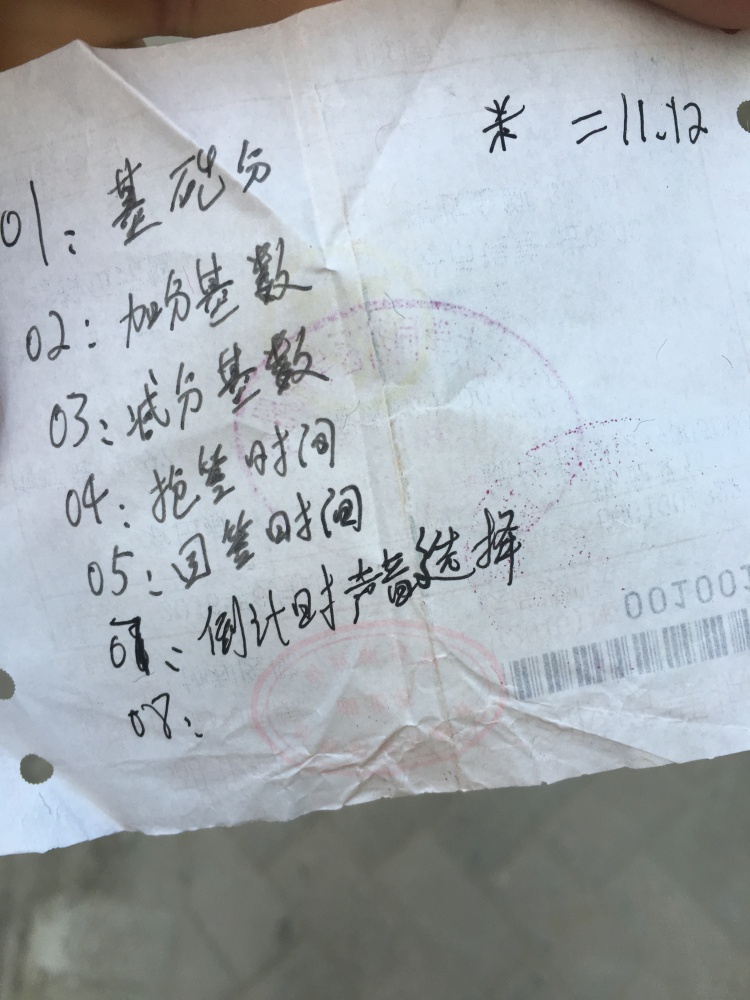 米 =11.12
01: 基础分
02: 加分基数
03: 减分基数
04: 抢答时间
05: 回答时间
07: 倒计时声音选择
08: